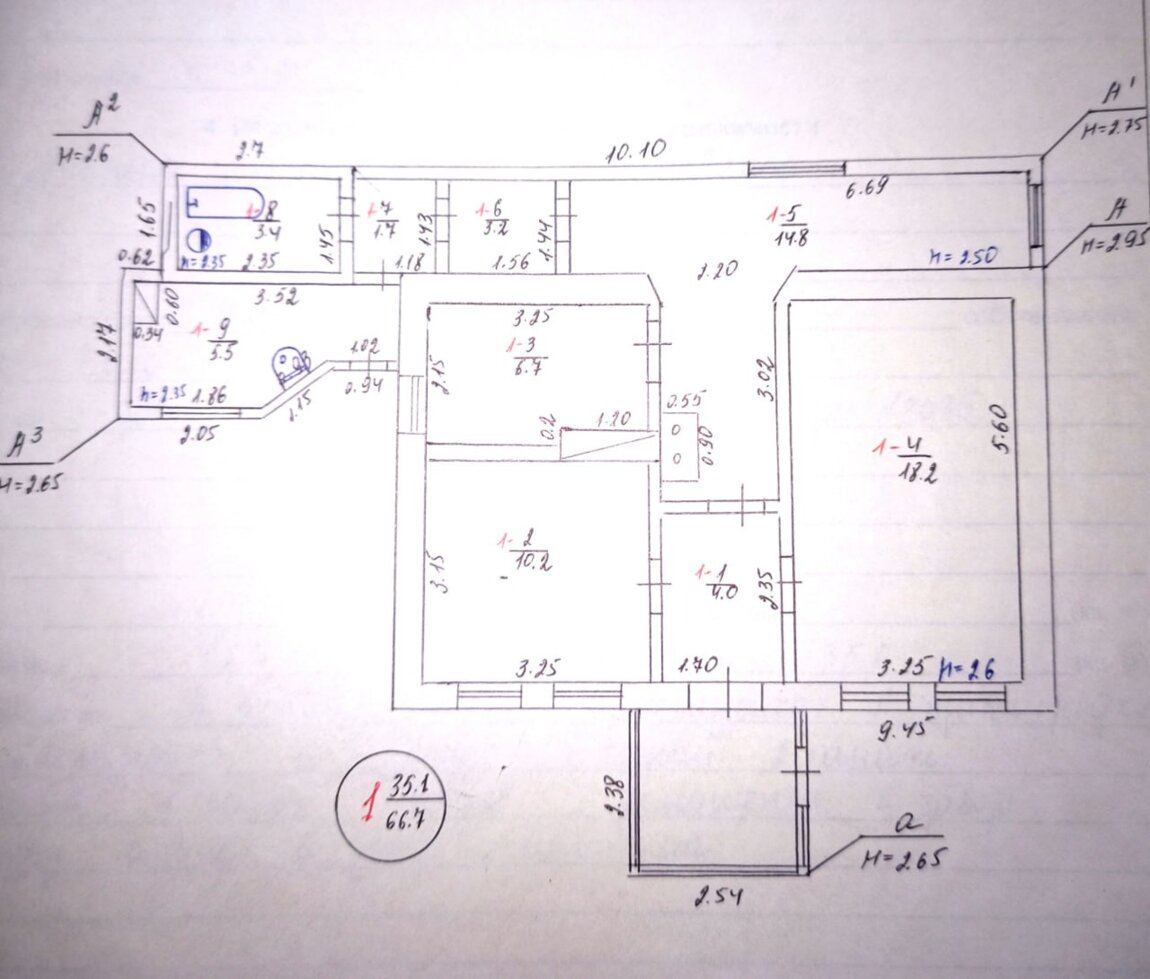 А²
H=2.6
2.7
10.10
А¹
H=2.75
А
H=2.95
1.65
1-8
3.4
h=2.35
2.35
1.45
1-7
1.7
1.18
1.43
1-6
3.2
1.56
1.44
1-5
14.8
6.69
h=2.50
2.20
0.62
3.52
0.60
0.34
2.17
1-9
5.5
h=2.35
1.86
2.05
1.15
1.02
0.94
А³
H=2.65
3.25
1-3
6.7
2.15
0.2
1.20
0.55
0.90
3.02
1-4
18.2
5.60
1-2
10.2
3.15
3.25
1-1
4.0
2.35
1.70
3.25
h=2.6
9.45
1
35.1
66.7
2.38
2.54
а
H=2.65